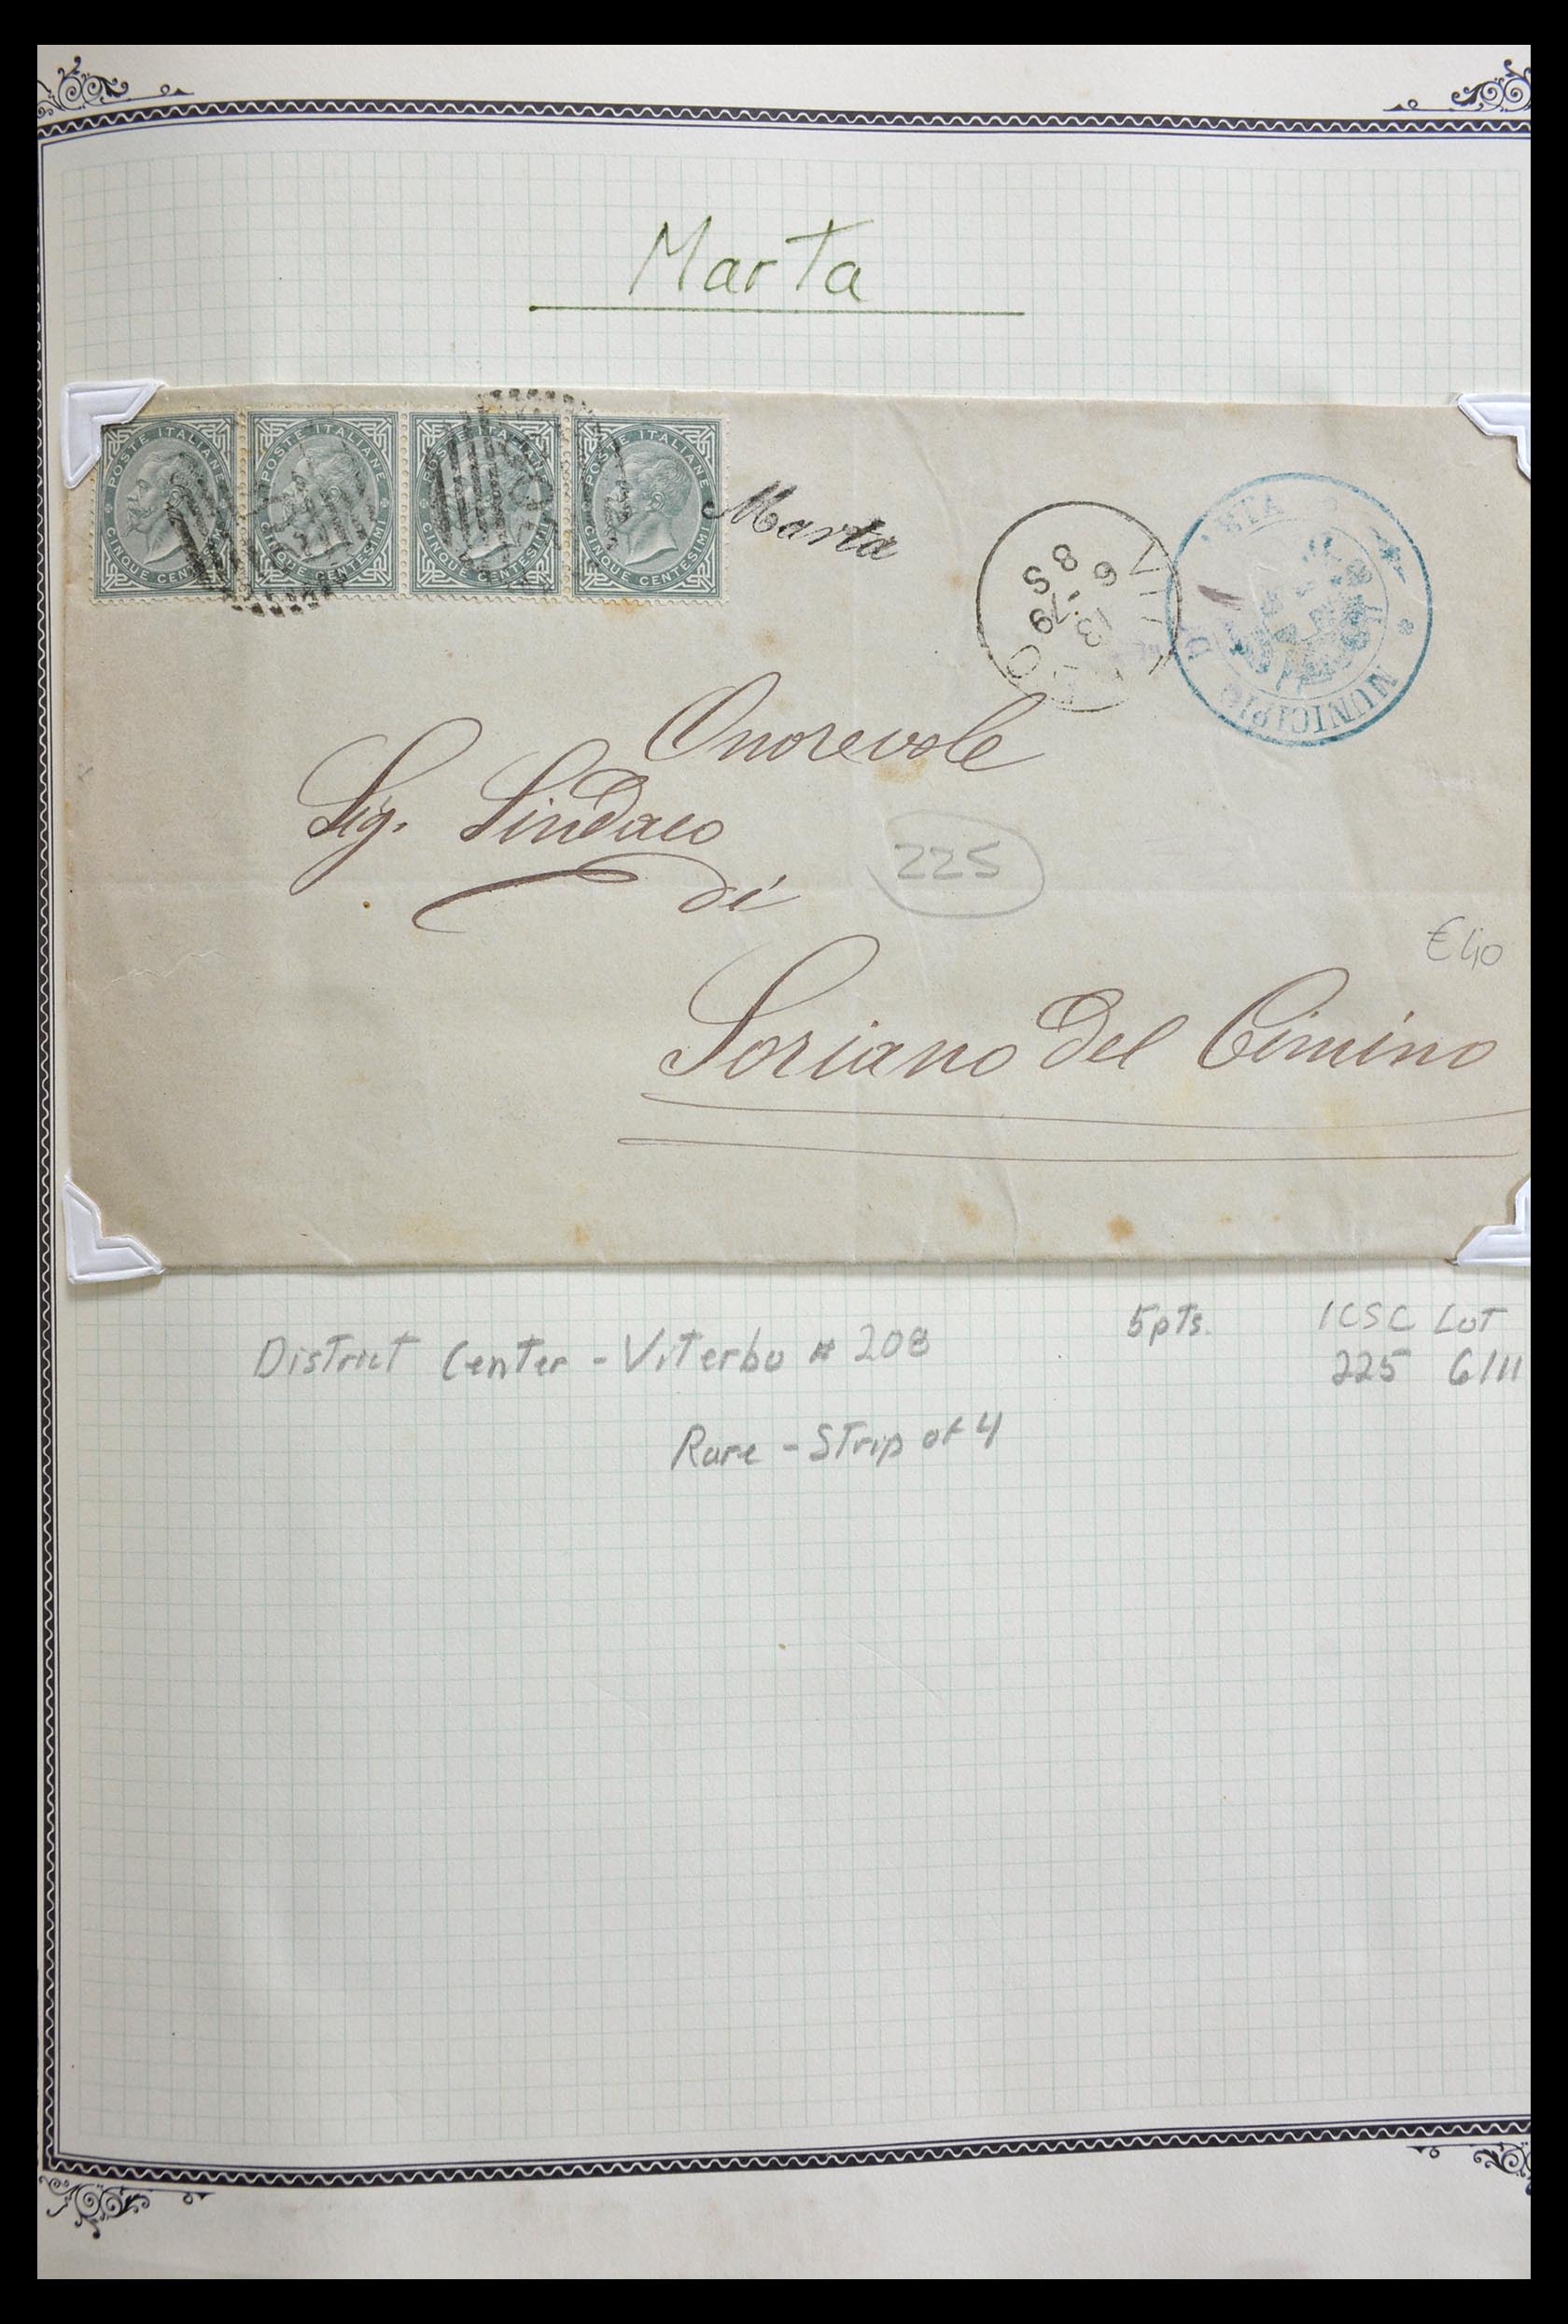 Marta
POSTE ITALIANE CINQUE CENTESIMI
POSTE ITALIANE CINQUE CENTESIMI
CINQUE CENTESIMI
POSTE ITALIANE CINQUE CENTESIMI
Marta
8 S
6 '79
13
MUNICIPIO
Onorevole
Sig. Sindaco
di
225
€40
Soriano del Cimino
District Center - Viterbo # 208
5pts.
ICSC Lot
225 6/11
Rare - Strip of 4